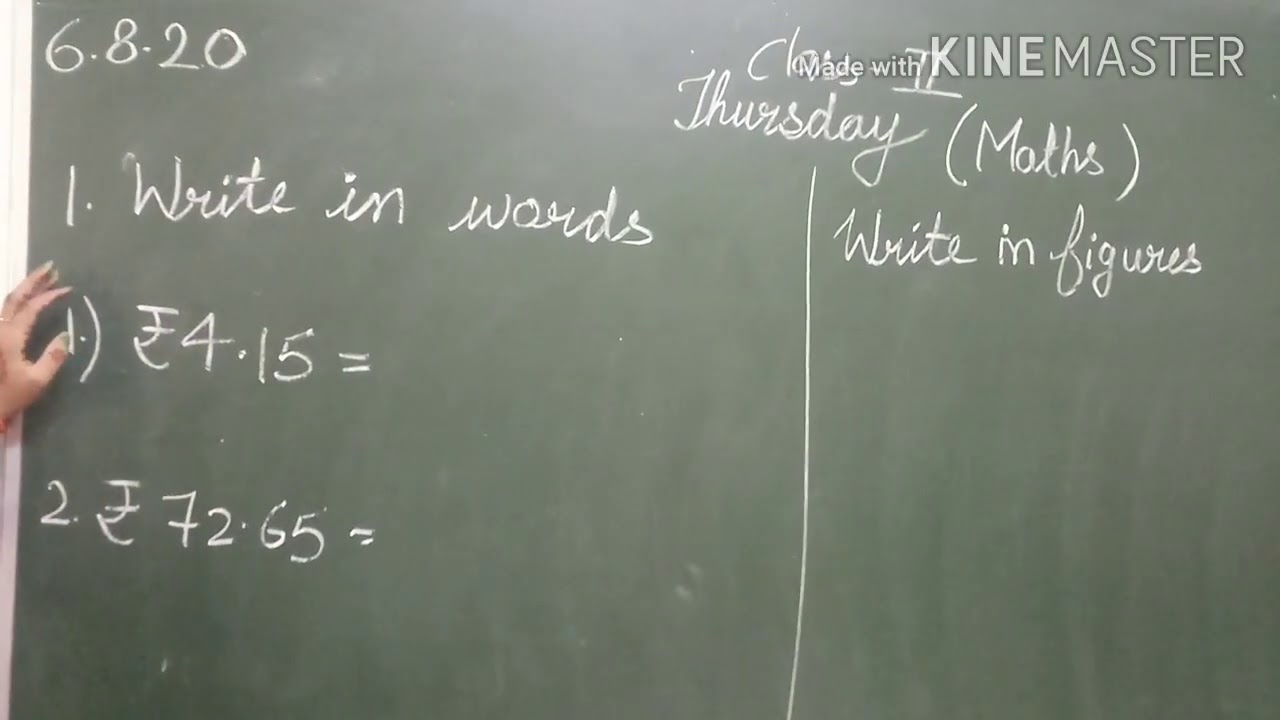 6.8.20
Class II
Made with KINEMASTER
Thursday (Maths)
1. Write in words
1.) ₹4.15 =
2. ₹72.65 =
Write in figures